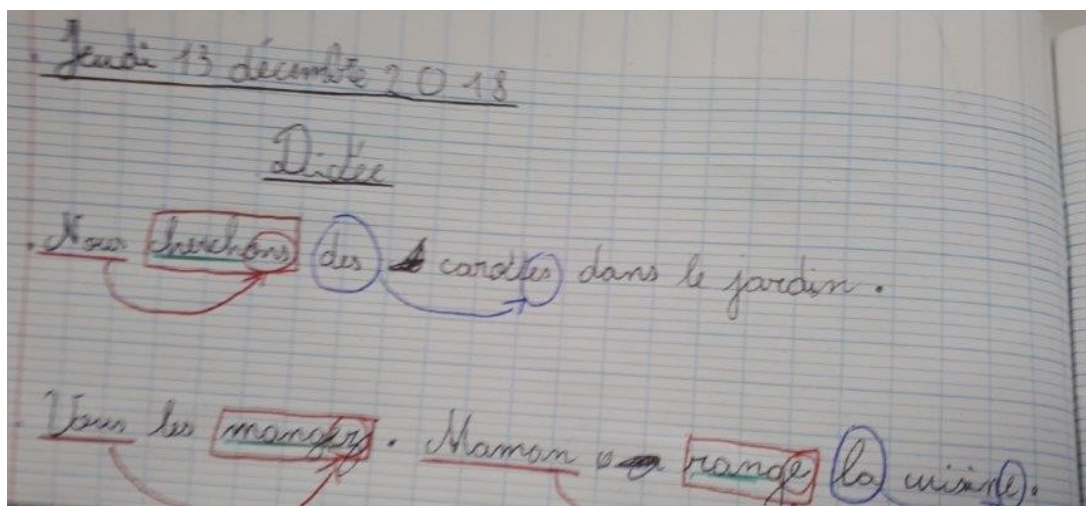 Jeudi 13 décembre 2018
Dictée
. Nous cherchons des carottes dans le jardin.
. Vous les mangez. Maman range la cuisine.